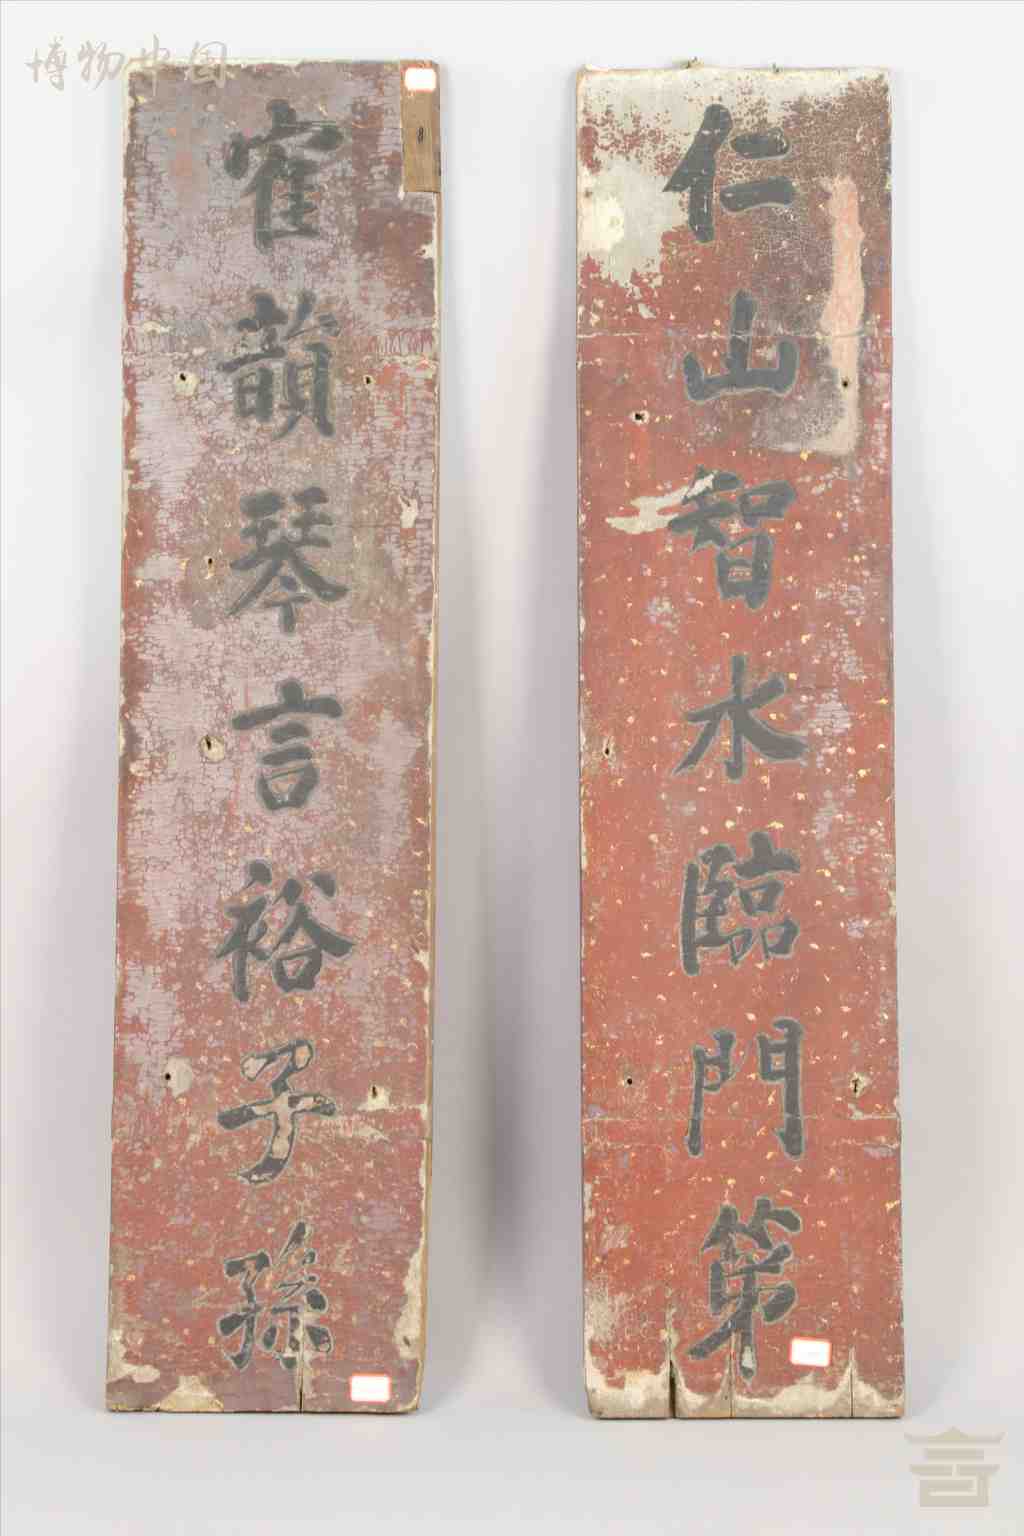 博物中国
仁山智水臨門第
寉韻琴言裕子孫